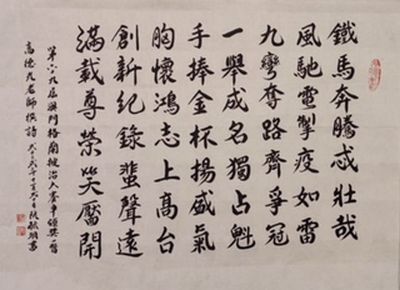 鐵馬奔騰忒壯哉
風馳電掣疫如雷
九彎奪路齊爭冠
一舉成名獨占魁
手捧金杯揚盛氣
胸懷鴻志上高台
創新紀錄蜚聲遠
滿載尊榮笑靨開
澳門格蘭披治大賽車頒獎一瞥
老師撰詩